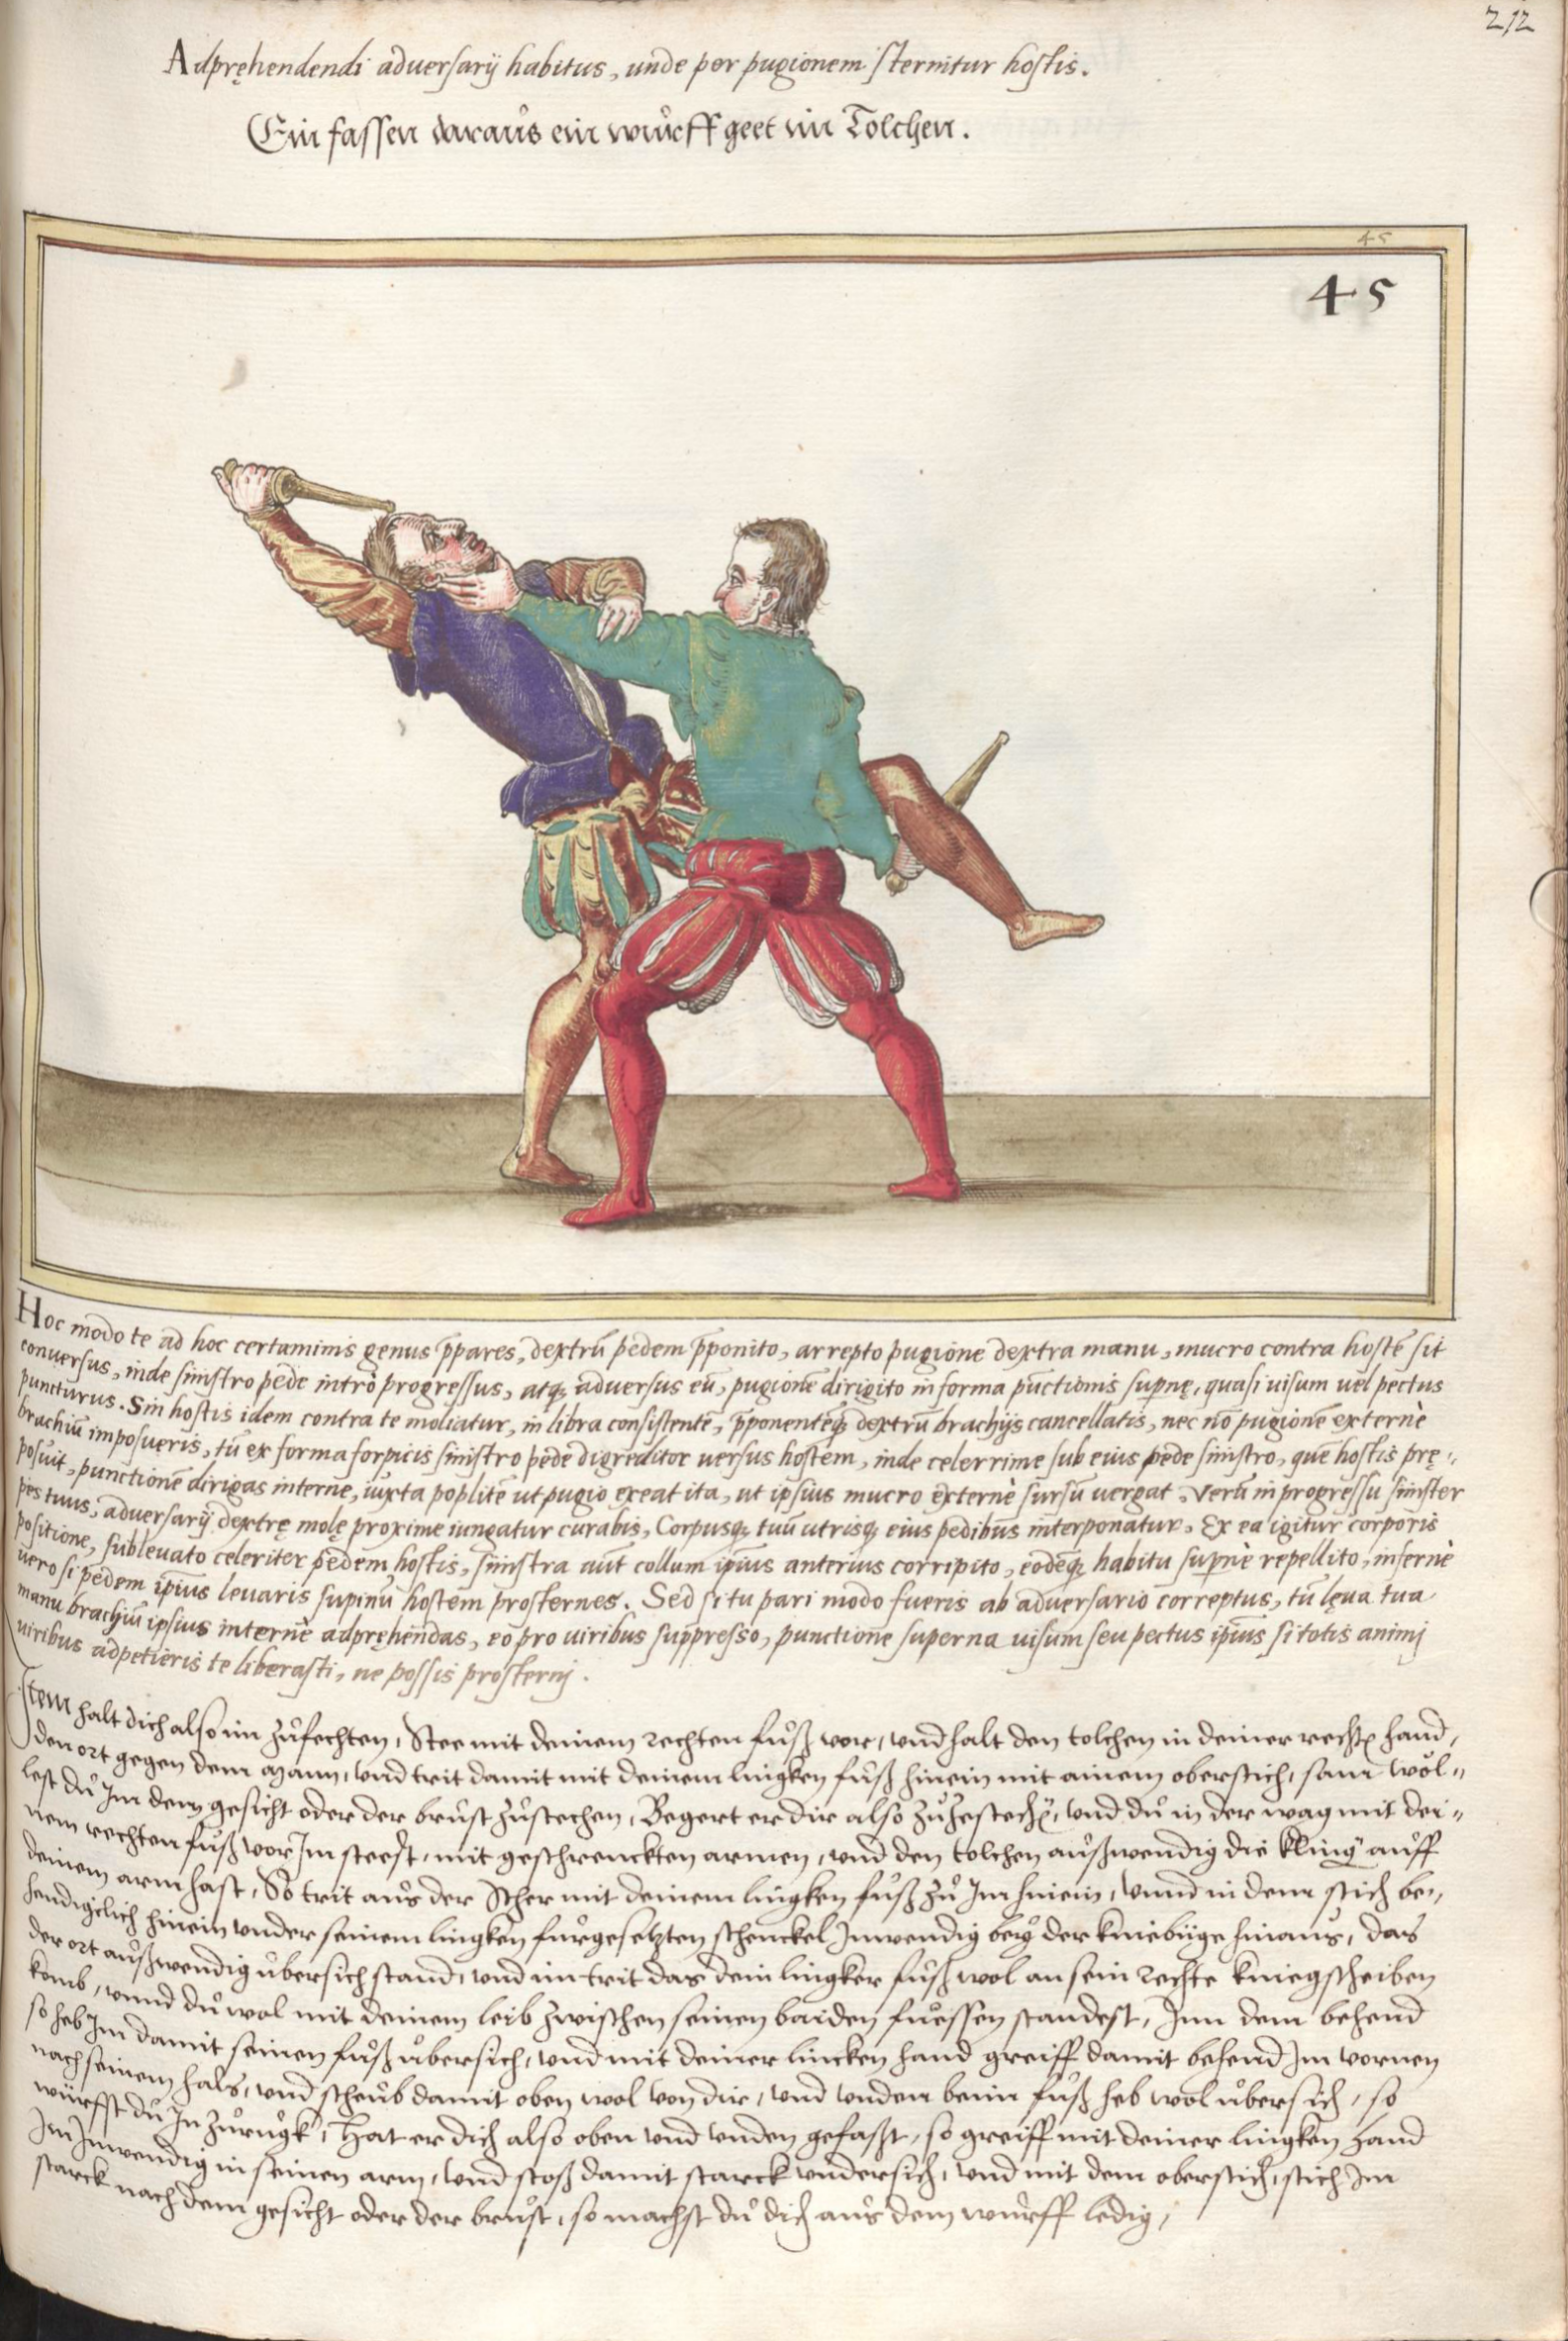 212
Adpręhendendi aduersarij habitus, unde per pugionem sternitur hostis.
Ein fassen daraus ein wurff geet im Tolchen.
45
45
Hoc modo te ad hoc certaminis genus p̄pares, dextrū pedem p̄ponito, arrepto pugione dextra manu, mucro contra hostē sit
conuersus, inde sinistro pede intrò progressus, atq; aduersus eū, pugionē dirigito in forma pūctionis supnę, quasi uisum uel pectus
puncturus. Sin hostis idem contra te moliatur, in libra consistentē, p̄ponentēq; dextrū brachijs cancellatis, nec nō pugionē externè
brachiū imposueris, tū ex forma forpicis sinistro pede digreditor uersus hostem, inde celerrime sub eius pede sinistro, quē hostis prę-
posuit, punctionē dirigas internè, iuxta poplitē ut pugio exeat ita, ut ipsius mucro externè sursū uergat. Verū in progressu sinister
pes tuus, aduersarij dextrę molę proxime iungatur curabis, Corpusq; tuū utrisq; eius pedibus interponatur. Ex ea igitur corporis
positione, subleuato celeriter pedem hostis, sinistra aūt collum ipsius anterius corripito, eodēq; habitu supnè repellito, infernè
uero si pedem ipsius leuaris supinū hostem prosternes. Sed si tu pari modo fueris ab aduersario correptus, tū lęua tua
manu brachiū ipsius internè adpręhendas, eo pro uiribus suppresso, punctione superna uisum seu pectus ipsius si totis animi
uiribus adpetieris te liberasti, ne possis prosterni.
Item halt dich also im zůfechten, Stee mit deinem rechten fůß vor, vnd halt den tolchen in deiner rechtē hand,
den ort gegen dem Mann, vnd trit damit mit deinem lingken fůß hinein mit ainem oberstich, sam wol-
lest dů Im dem gesicht oder der brůst zůstechen, Begert er dir also zůzestechē, vnd dů in der wag mit dei-
nem rechten fůß vor Im steest, mit geschrenckten armen, vnd den tolchen aůßwendig die kling aůff
deinem arm hast, So trit aůs der Scher mit deinem lingken fůß zů Im hinein, vnnd in dem stich be-
hendigclich hinein vnder seinem lingken fůrgesetzten schenckel Inwendig bey der kniebüge hinaůs, das
der ort aůßwendig ůbersich stand, vnd im trit das dein lingker fůß wol an sein rechte kniegscheiben
komb, vnnd dů wol mit deinem leib zwischen seinen baiden fůessen standest, Inn dem behend
so heb Im damit seinen fůß ůbersich, vnd mit deiner lincken hand greiff damit behend Im vornen
nach seinem hals, vnd scheůb damit oben wol von dir, vnd vnden beim fůß heb wol ůbersich, so
würffst dů In zůrůgk, Hat er dich also oben vnd vnden gefaßt, so greiff mit deiner lingken hand
Im Inwendig in seinen arm, vnd stoß damit starck vndersich, vnd mit dem oberstich, stich Im
starck nach dem gesicht oder der brůst, so machst dů dich aůs dem wůrff ledig,